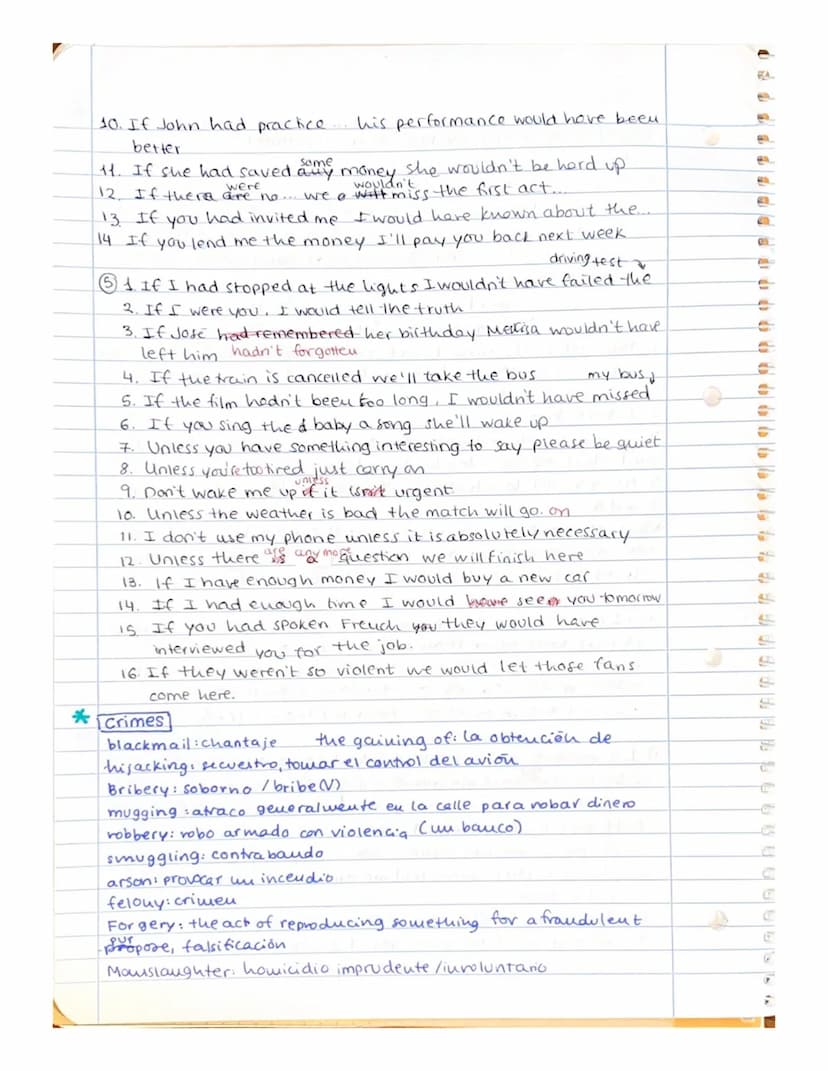 10. If John had practice ... his performance would have been
better
11. If she had saved any some money she wouldn't be hard up
12. If there are were no ... we will wouldn't miss the first act...
13. If you had invited me I would have known about the...
14 If you lend me the money I'll pay you back next week
driving test
5 1. If I had stopped at the lights I wouldn't have failed the
2. If I were you, I would tell the truth
3. If José had remembered her birthday Melissa wouldn't have
left him hadn't forgotten
4. If the train is cancelled we'll take the bus my bus
5. If the film hadn't been too long, I wouldn't have missed
6. If you sing the baby a song she'll wake up
7. Unless you have something interesting to say please be quiet
8. Unless you're too tired just carry on
9. Don't wake me up if unless it isn't urgent
10. Unless the weather is bad the match will go. on
11. I don't use my phone unless it is absolutely necessary
12. Unless there is are a any more question we will finish here
13. If I have enough money I would buy a new car
14. If I had enough time I would have seen you tomorrow
15 If you had spoken French you they would have
interviewed you for the job.
16 If they weren't so violent we would let those fans
come here.
* Crimes
blackmail: chantaje the gaining of: la obtención de
hijacking: secuestro, tomar el control del avión
Bribery: soborno / bribe (V)
mugging: atraco generalmente en la calle para robar dinero
robbery: robo armado con violencia (un banco)
smuggling: contrabando
arson: provocar un incendio
felony: crimen
Forgery: the act of reproducing something for a fraudulent
purpose, falsificación
Manslaughter: homicidio imprudente / involuntario